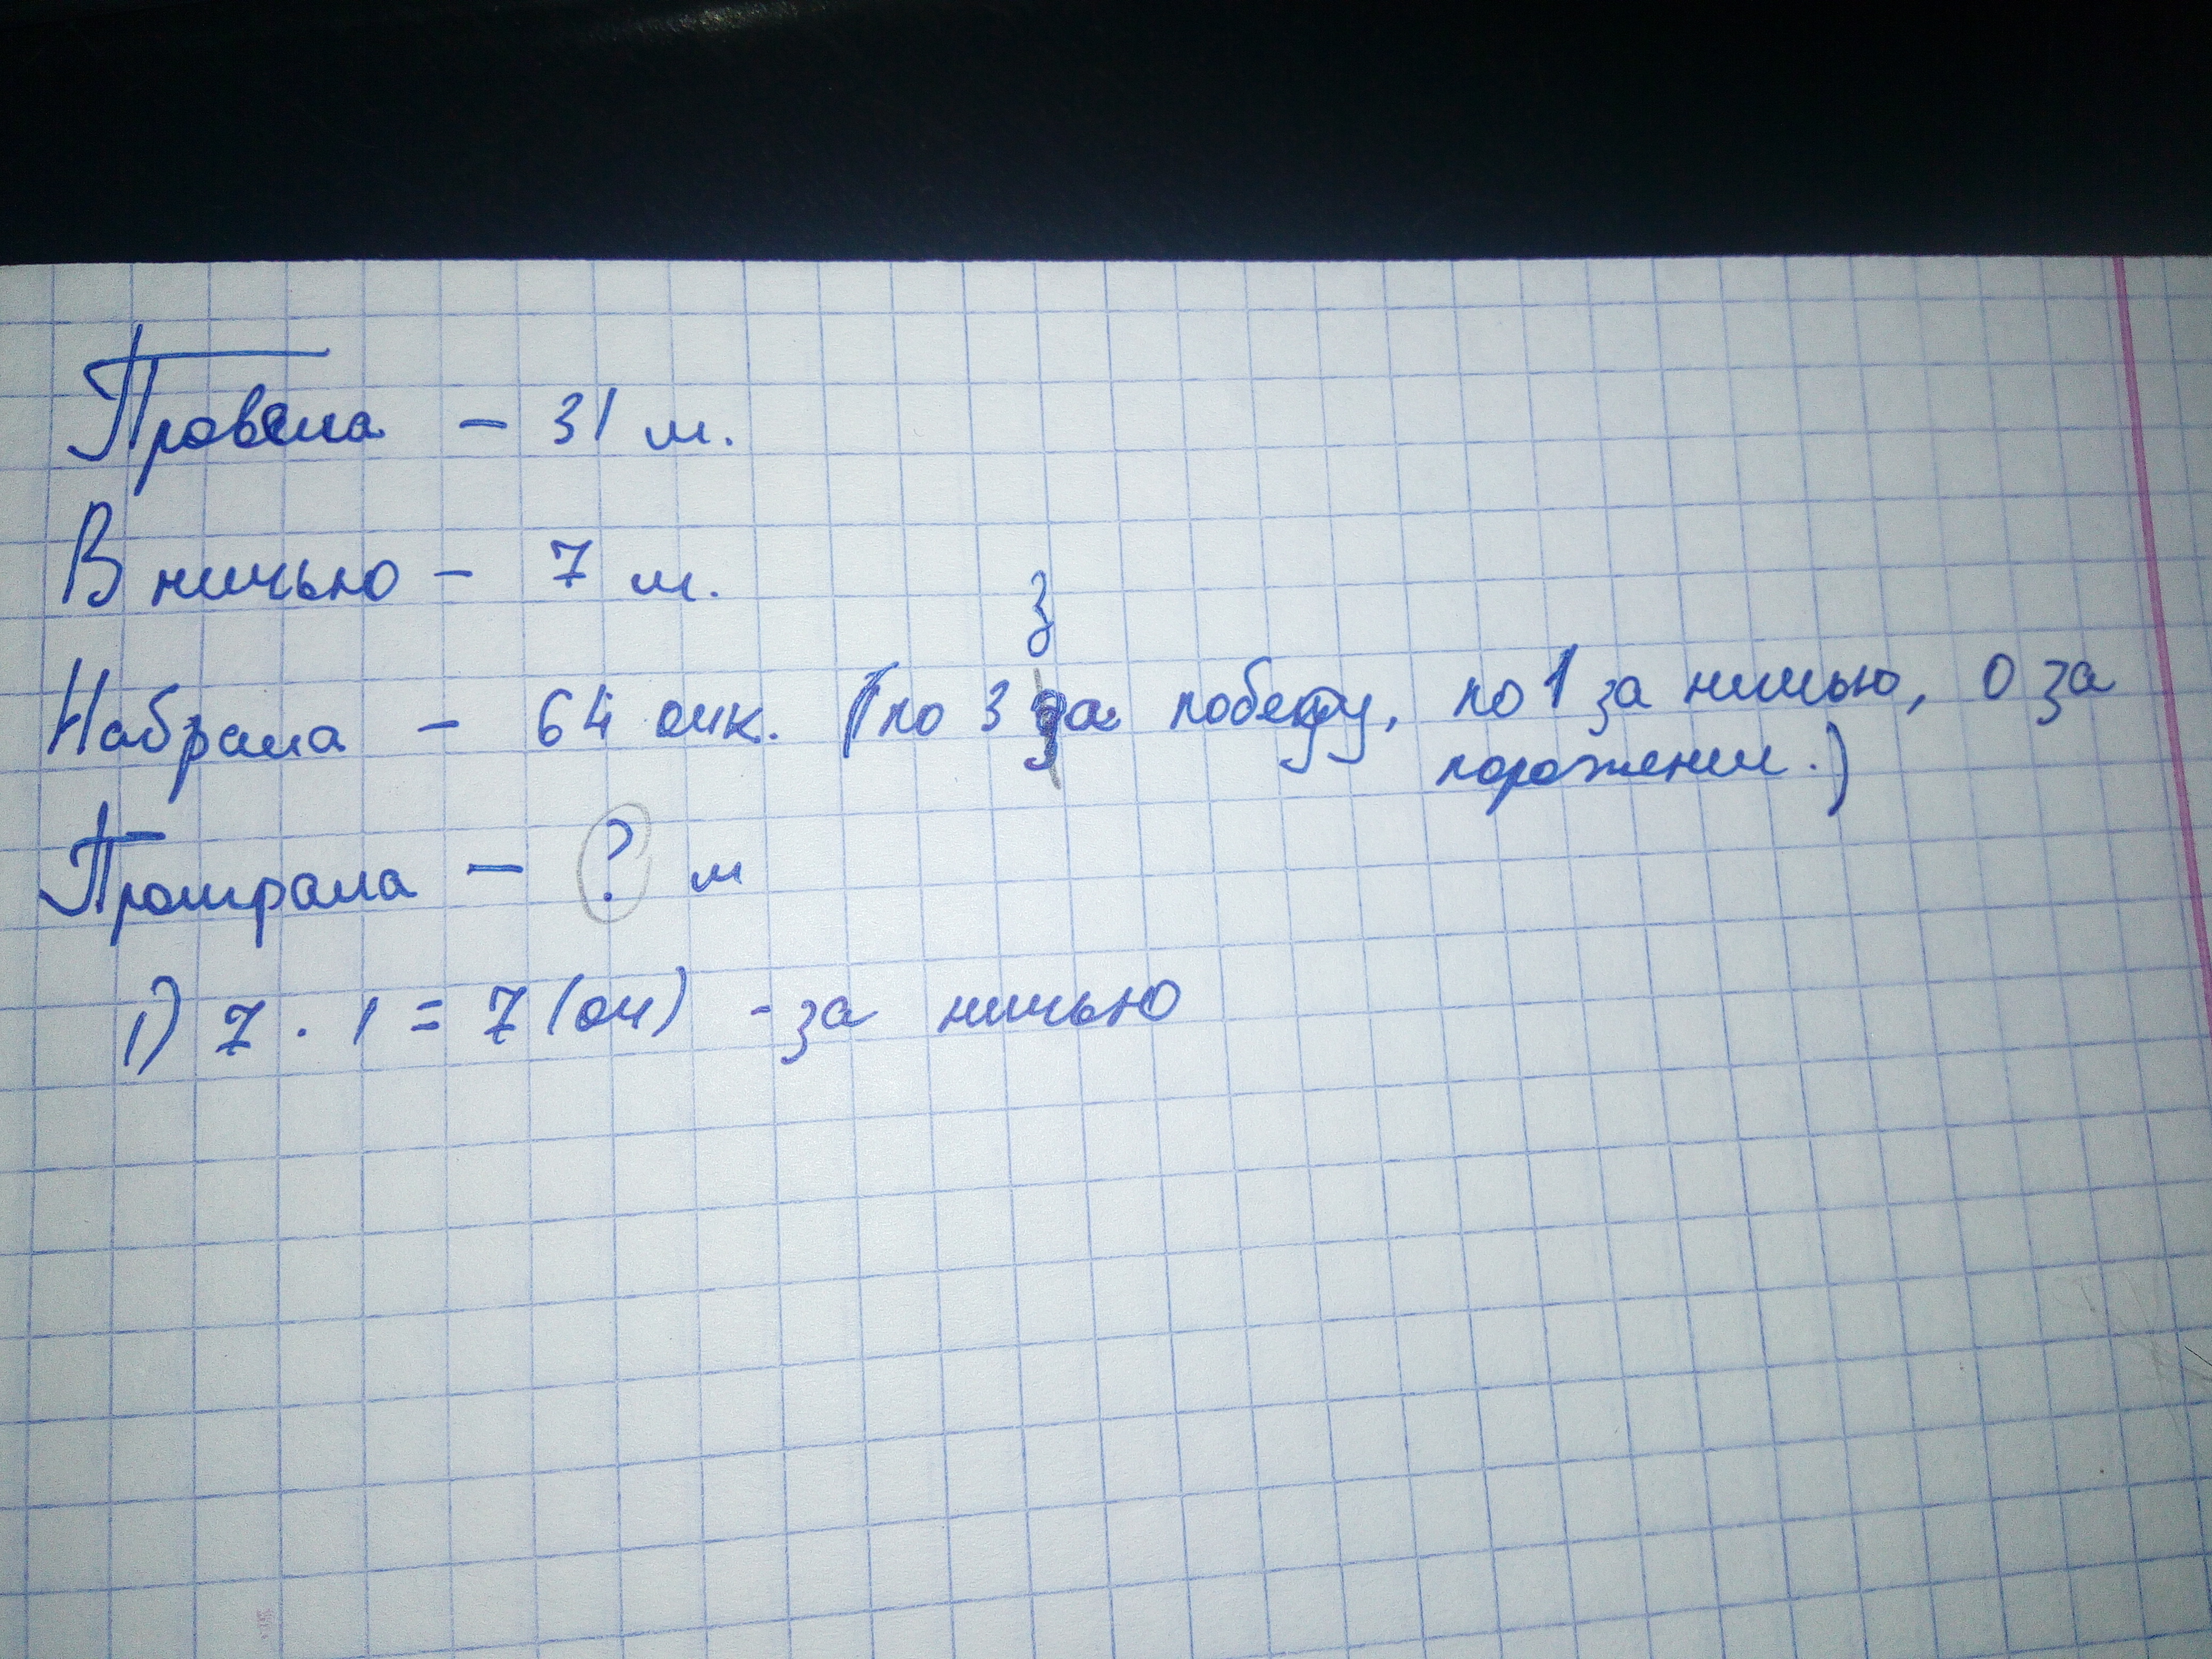 Провела - 31 м.
В ничью - 7 м.
з
Набрала - 64 очк. (по 3 за победу, по 1 за ничью, 0 за
поражении.)
Проиграла - ? м
1) 7 · 1 = 7 (оч) - за ничью